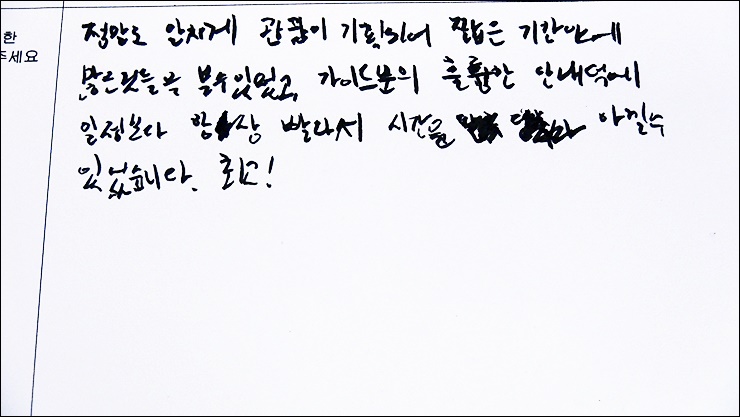 한
주세요
정말로 알차게 관광이 기획되어 짧은 기간안에
많은것들을 볼수있었고, 가이드분의 훌륭한 안내덕에
일정보다 항상 빨라서 시간을 아낄수
있었습니다. 최고!